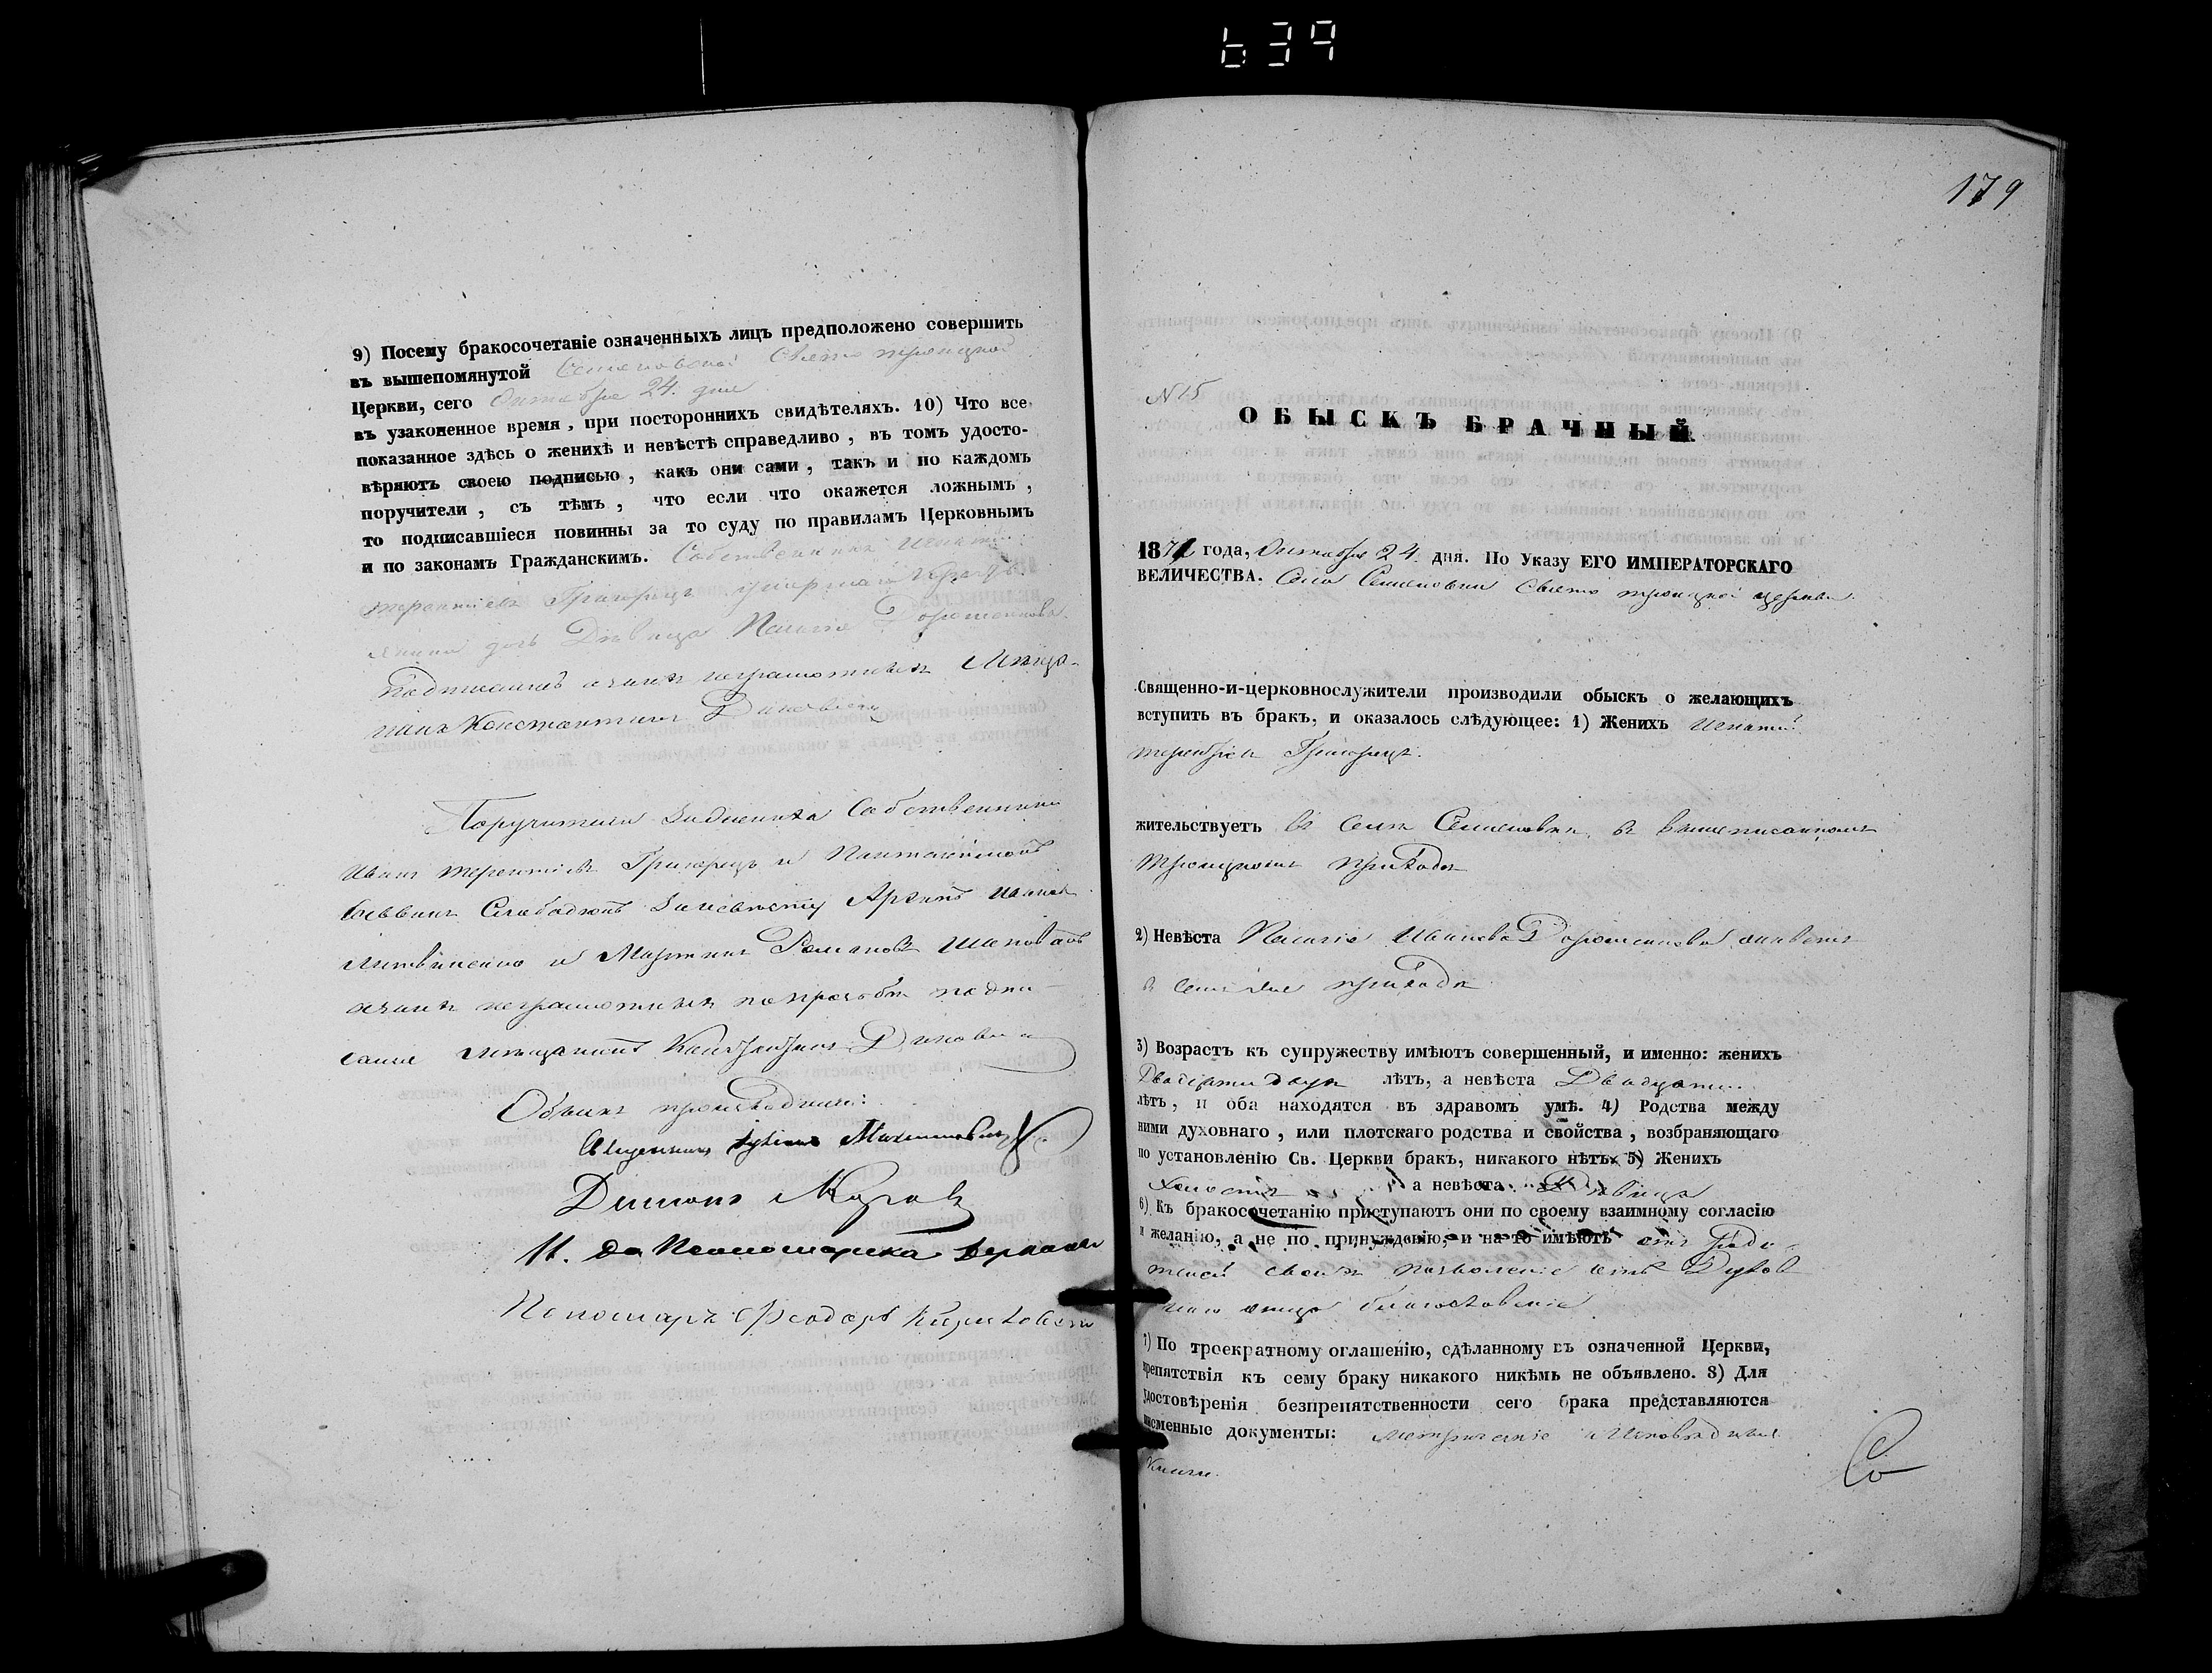 639
9) Посему бракосочетаніе означенныхъ лицъ предположено совершить
въ вышепомянутой Семеновской Свято троицкой
Церкви, сего Октября 24. дня
въ узаконенное время, при постороннихъ свидѣтеляхъ. 10) Что все
показанное здѣсь о женихѣ и невѣстѣ справедливо, въ томъ удосто-
вѣряютъ своею подписью, какъ они сами, такъ и по каждомъ
поручители, съ тѣмъ, что если что окажется ложнымъ,
то подписавшіеся повинны за то суду по правиламъ Церковнымъ
и по законамъ Гражданскимъ. Собственникъ Игнатій
терентіевъ Григорецъ
дочь Дѣвица Пелагія Дорошенкова
неграмотныхъ Мѣща-
нинъ Константинъ
Поручители Собственники
Иванъ терентіевъ Григорецъ и Пантелеимонъ
Слободюкъ Заневѣсту Архипъ Ивановъ
Литвиненко и Мартинъ Романовъ Шаповалъ
неграмотныхъ попрозьбѣ подпи-
сался мѣщанинъ
Обыскъ производили:
Священникъ
Диконъ
И. до Пономарска
Пономарь Феодоръ
179
N 15
ОБЫСКЪ БРАЧНЫЙ
187 года, Октября 24 дня. По Указу ЕГО ИМПЕРАТОРСКАГО
ВЕЛИЧЕСТВА. Села Семеновки Свято троицкой церкви
Священно-и-церковнослужители производили обыскъ о желающихъ
вступить въ бракъ, и оказалось слѣдующее: 1) Женихъ Игнатій
терентіевъ Григорецъ.
жительствуетъ въ селѣ Семеновкѣ, въ вышеписанномъ
троицкомъ приходѣ
2) Невѣста Пелагія Иванова Дорошенкова живетъ
в семъ же приходѣ
3) Возрастъ къ супружеству имѣютъ совершенный, и именно: женихъ
Двадцати двухъ лѣтъ, а невѣста Двадцати
лѣтъ, и оба находятся въ здравомъ умѣ. 4) Родства между
ними духовнаго, или плотскаго родства и свойства, возбраняющаго
по установленію Св. Церкви бракъ, никакого нѣтъ. 5) Женихъ
Холостъ а невѣста Дѣвица
6) Къ бракосочетанію приступаютъ они по своему взаимному согласію
и желанію, а не по принужденію, и на то имѣютъ отъ Роди-
телей своихъ позволеніе отъ Духов
наго отца благословеніе
7) По троекратному оглашенію, сдѣланному въ означенной Церкви,
препятствія къ сему браку никакого никѣмъ не объявлено. 8) Для
удостовѣренія безпрепятственности сего брака представляются
писменные документы: метрическіе и Исповѣдныя
Книги.